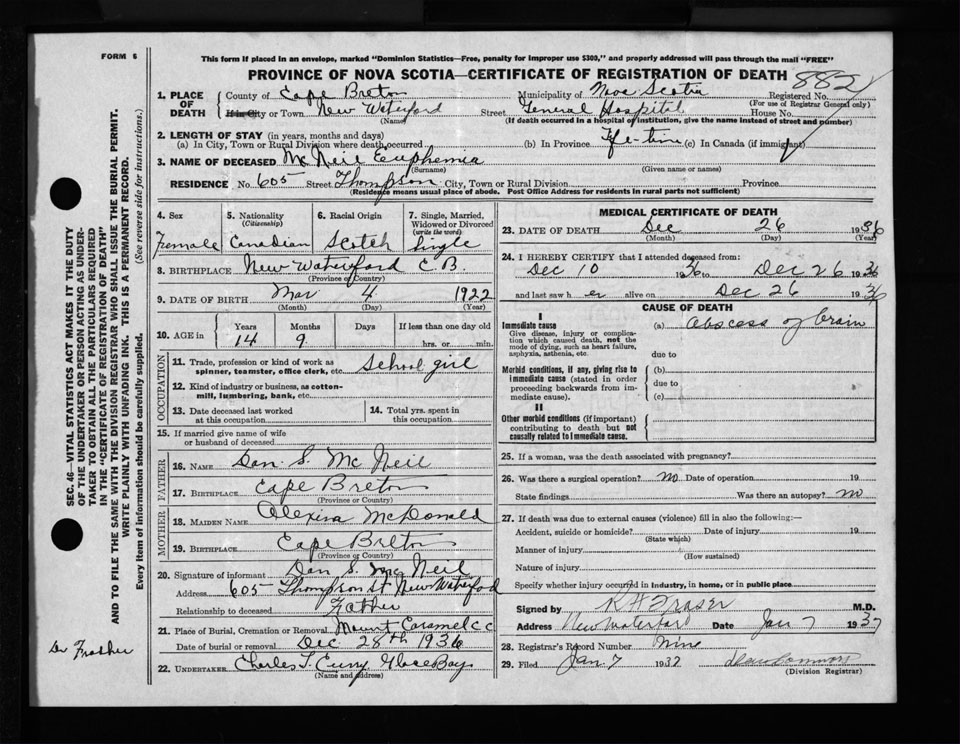 FORM 6
This form if placed in an envelope, marked "Dominion Statistics—Free, penalty for improper use $300," and properly addressed will pass through the mail "FREE"
PROVINCE OF NOVA SCOTIA—CERTIFICATE OF REGISTRATION OF DEATH
882
1. PLACE OF DEATH
County of Cape Breton Municipality of Nova Scotia Registered No.
(For use of Registrar General only)
City or Town New Waterford Street General Hospital House No.
(Name) (If death occurred in a hospital or institution, give the name instead of street and number)
2. LENGTH OF STAY (in years, months and days)
(a) In City, Town or Rural Division where death occurred (b) In Province life-time (c) In Canada (if immigrant)
3. NAME OF DECEASED McNeil Euphemia
(Surname) (Given name or names)
RESIDENCE No. 605 Street Thompson City, Town or Rural Division Province
(Residence means usual place of abode. Post Office Address for residents in rural parts not sufficient)
4. Sex 5. Nationality 6. Racial Origin 7. Single, Married,
(Citizenship) Widowed or Divorced
(write the word)
Female Canadian Scotch Single
8. BIRTHPLACE New Waterford C.B.
(Province or Country)
9. DATE OF BIRTH Mar 4 1922
(Month) (Day) (Year)
10. AGE in Years Months Days If less than one day old
14 9 hrs. or min.
OCCUPATION
11. Trade, profession or kind of work as
spinner, teamster, office clerk, etc. School girl
12. Kind of industry or business, as cotton-
mill, lumbering, bank, etc.
13. Date deceased last worked
at this occupation
14. Total yrs. spent in
this occupation
15. If married give name of wife
or husband of deceased
FATHER
16. NAME Dan. S. McNeil
17. BIRTHPLACE Cape Breton
(Province or Country)
MOTHER
18. MAIDEN NAME Alexina McDonald
19. BIRTHPLACE Cape Breton
(Province or Country)
20. Signature of informant Dan S. McNeil
Address 605 Thompson St New Waterford
Relationship to deceased Father
21. Place of Burial, Cremation or Removal Mount Caramel C.C
Date of burial or removal Dec 28th 1936
22. UNDERTAKER Charles Glace Bay
(Name and address)
MEDICAL CERTIFICATE OF DEATH
23. DATE OF DEATH Dec 26 1936
(Month) (Day) (Year)
24. I HEREBY CERTIFY that I attended deceased from:
Dec 10 1936 to Dec 26 1936
and last saw her alive on Dec 26 1936
CAUSE OF DEATH
I
Immediate cause (a) abscess of brain
Give disease, injury or complica-
tion which caused death, not the
mode of dying, such as heart failure,
asphyxia, asthenia, etc. due to
Morbid conditions, if any, giving rise to (b)
immediate cause (stated in order due to
proceeding backwards from im-
mediate cause). (c)
II
Other morbid conditions (if important)
contributing to death but not
causally related to immediate cause.
25. If a woman, was the death associated with pregnancy?
26. Was there a surgical operation? no Date of operation 19
State findings Was there an autopsy? no
27. If death was due to external causes (violence) fill in also the following:—
Accident, suicide or homicide? Date of injury 19
(State which)
Manner of injury
(How sustained)
Nature of injury
Specify whether injury occurred in industry, in home, or in public place
Signed by R H Fraser M.D.
Address New Waterford Date Jan 7 1937
28. Registrar's Record Number Nine
29. Filed Jan 7 1937
(Division Registrar)
SEC. 46—VITAL STATISTICS ACT MAKES IT THE DUTY
OF THE UNDERTAKER OR PERSON ACTING AS UNDER-
TAKER TO OBTAIN ALL THE PARTICULARS REQUIRED
IN THE "CERTIFICATE OF REGISTRATION OF DEATH"
AND TO FILE THE SAME WITH THE DIVISION REGISTRAR WHO SHALL ISSUE THE BURIAL PERMIT.
WRITE PLAINLY WITH UNFADING INK. THIS IS A PERMANENT RECORD.
Every item of information should be carefully supplied. (See reverse side for instructions.)